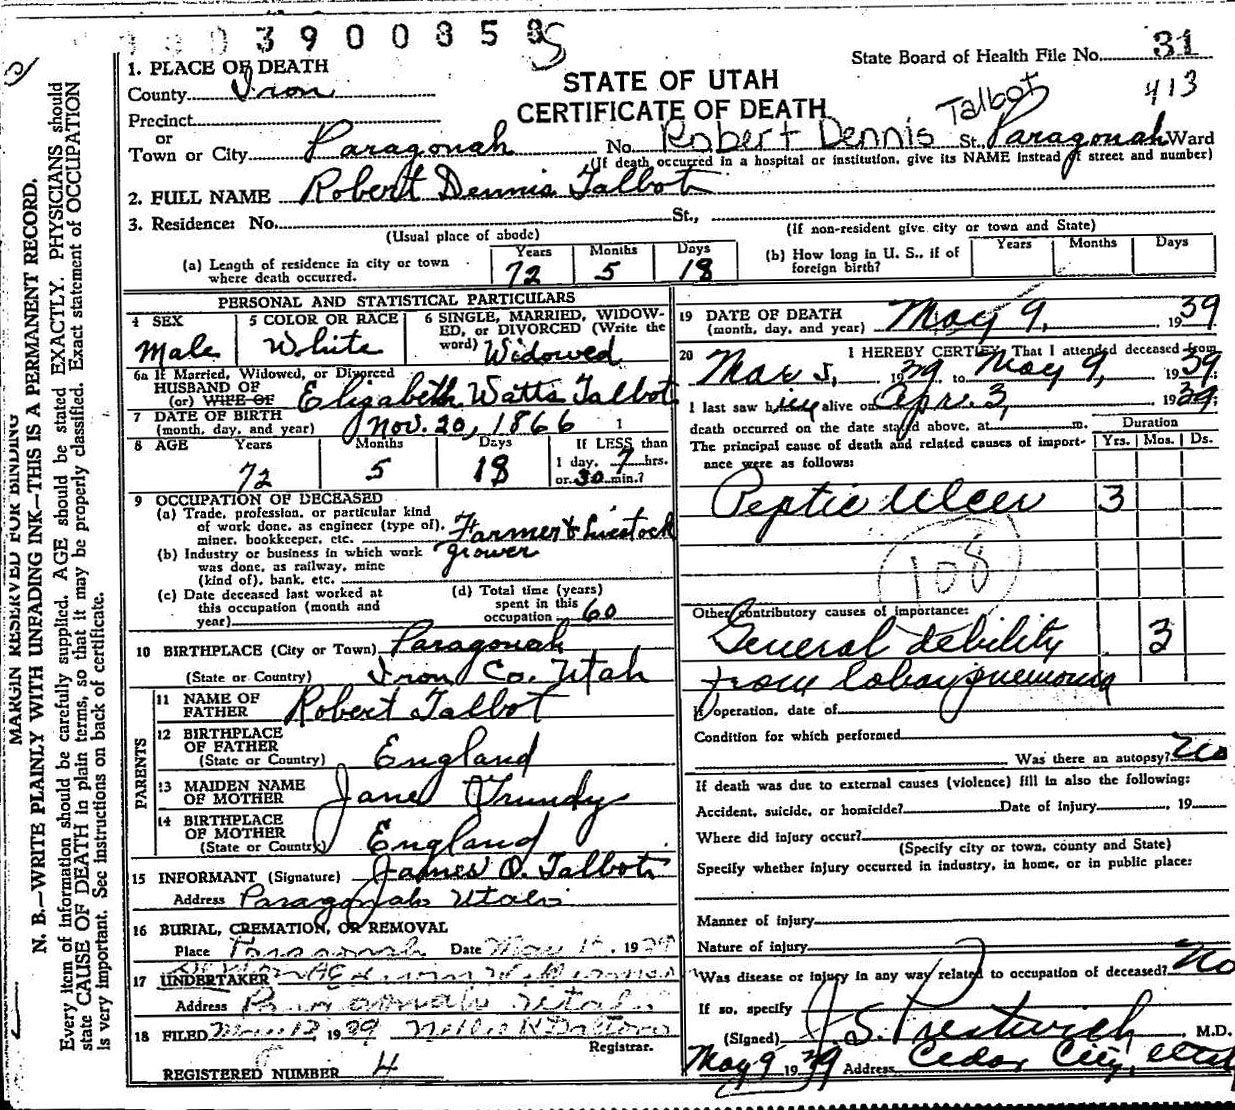 3900358
S
State Board of Health File No. 31
413
1. PLACE OF DEATH
County Iron
STATE OF UTAH
CERTIFICATE OF DEATH
Precinct
or
Town or City Paragonah No. Robert Dennis Talbot St. Paragonah Ward
(If death occurred in a hospital or institution, give its NAME instead of street and number)
2. FULL NAME Robert Dennis Talbot
3. Residence: No. St.,
(Usual place of abode) (If non-resident give city or town and State)
(a) Length of residence in city or town where death occurred. Years 72 Months 5 Days 18
(b) How long in U. S., if of foreign birth? Years Months Days
PERSONAL AND STATISTICAL PARTICULARS
4 SEX Male
5 COLOR OR RACE White
6 SINGLE, MARRIED, WIDOWED, or DIVORCED (Write the word) Widowed
6a If Married, Widowed, or Divorced
HUSBAND OF
(or) WIFE OF Elizabeth Watts Talbot
7 DATE OF BIRTH
(month, day, and year) Nov. 20, 1866 1
8 AGE Years 72 Months 5 Days 18 If LESS than 1 day, 7 hrs. or 30 min.?
9 OCCUPATION OF DECEASED
(a) Trade, profession, or particular kind of work done, as engineer (type of), miner, bookkeeper, etc. Farmer & Livestock grower
(b) Industry or business in which work was done, as railway, mine (kind of), bank, etc.
(c) Date deceased last worked at this occupation (month and year)
(d) Total time (years) spent in this occupation 60
10 BIRTHPLACE (City or Town) Paragonah
(State or Country) Iron Co. Utah
PARENTS
11 NAME OF FATHER Robert Talbot
12 BIRTHPLACE OF FATHER
(State or Country) England
13 MAIDEN NAME OF MOTHER Jane Trundy
14 BIRTHPLACE OF MOTHER
(State or Country) England
15 INFORMANT (Signature) James O. Talbot
Address Paragonah Utah
16 BURIAL, CREMATION, OR REMOVAL
Place Paragonah Date May 1 1939
17 UNDERTAKER
Address Paragonah Utah
18 FILED May 12 1939
Registrar.
REGISTERED NUMBER 4
19 DATE OF DEATH
(month, day, and year) May 9, 1939
20 I HEREBY CERTIFY, That I attended deceased from
Mar 5, 1939 to May 9, 1939;
I last saw him alive on Apr. 3, 1939;
death occurred on the date stated above, at m.
Duration
The principal cause of death and related causes of importance were as follows: Yrs. Mos. Ds.
Peptic Ulcer 3
108
Other contributory causes of importance:
General debility 3
from lobar pneumonia
If operation, date of
Condition for which performed
Was there an autopsy? No
If death was due to external causes (violence) fill in also the following:
Accident, suicide, or homicide? Date of injury , 19
Where did injury occur?
(Specify city or town, county and State)
Specify whether injury occurred in industry, in home, or in public place:
Manner of injury
Nature of injury
Was disease or injury in any way related to occupation of deceased? No
If so, specify
(Signed) J. S. Prestwich M.D.
May 9 1939 Address Cedar City, Utah
MARGIN RESERVED FOR BINDING
N. B.—WRITE PLAINLY WITH UNFADING INK—THIS IS A PERMANENT RECORD.
Every item of information should be carefully supplied. AGE should be stated EXACTLY. PHYSICIANS should
state CAUSE OF DEATH in plain terms, so that it may be properly classified. Exact statement of OCCUPATION
is very important. See instructions on back of certificate.